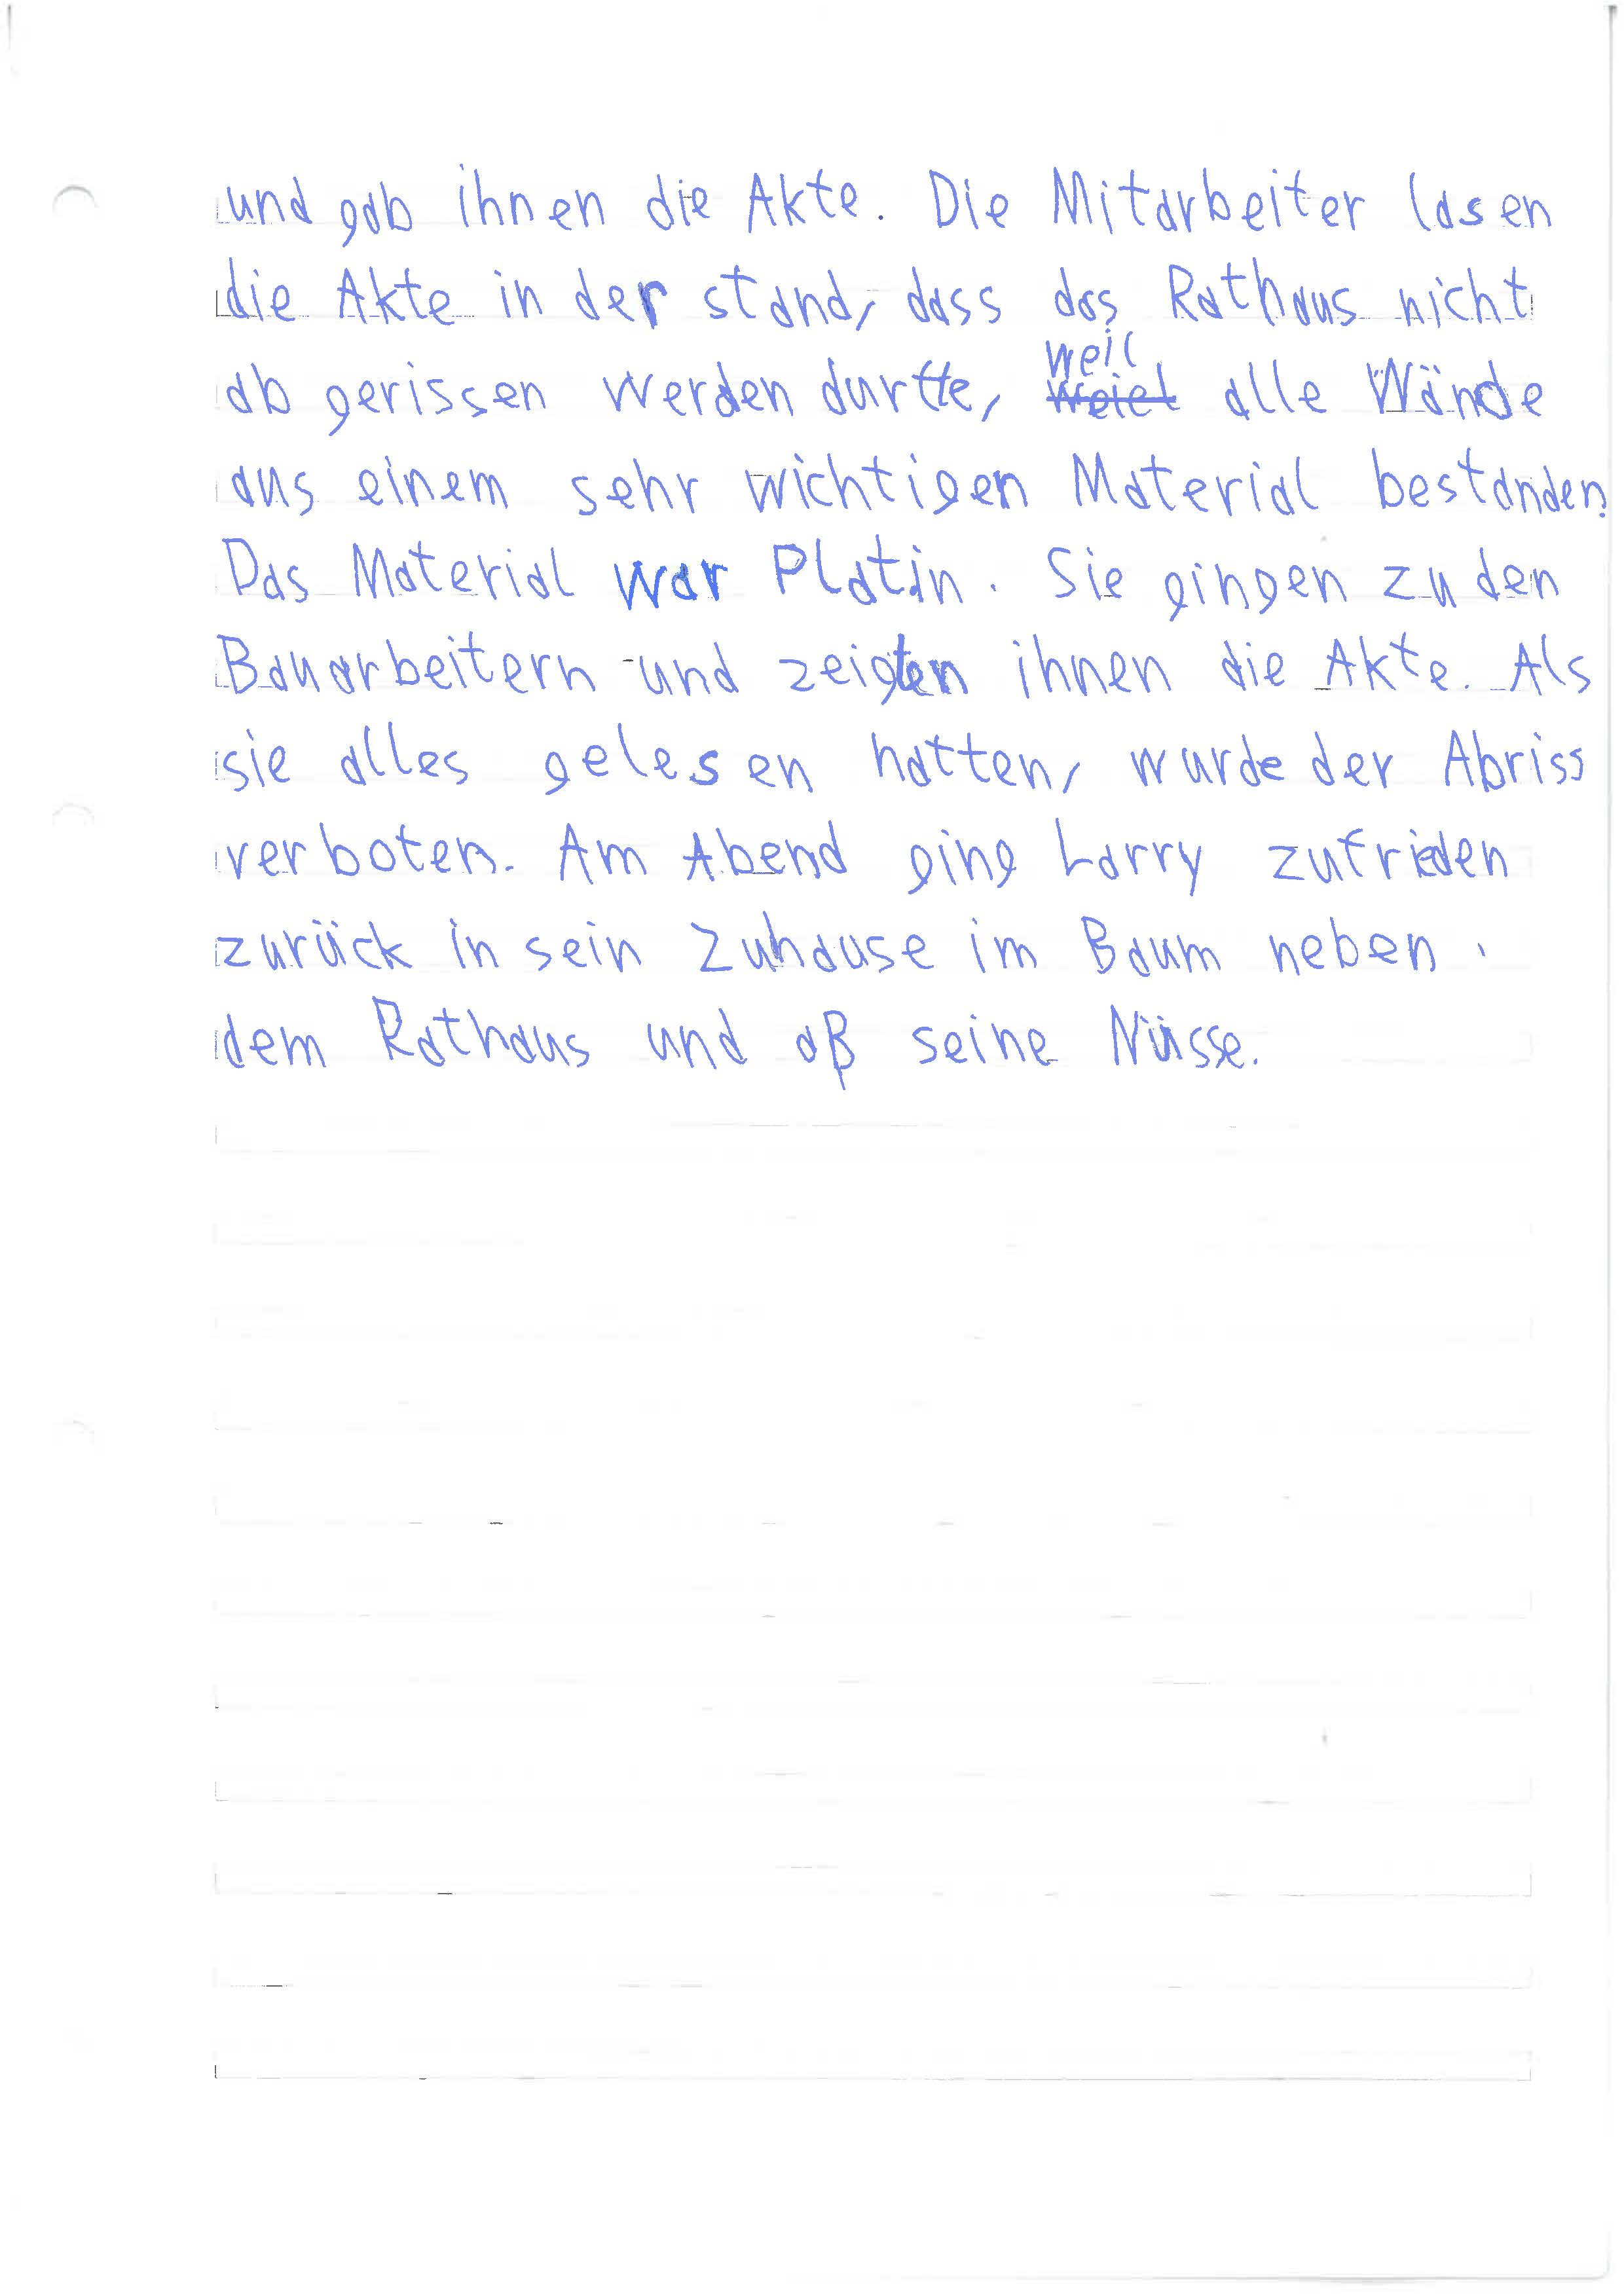 und gab ihnen die Akte. Die Mitarbeiter lasen
die Akte in der stand, dass das Rathaus nicht
ab gerissen werden durfte, weil alle Wände
aus einem sehr wichtigen Material bestanden.
Das Material war Platin. Sie gingen zu den
Bauarbeitern und zeigten ihnen die Akte. Als
sie alles gelesen hatten, wurde der Abriss
verboten. Am Abend ging Larry zufrieden
zurück in sein Zuhause im Baum neben
dem Rathaus und aß seine Nüsse.